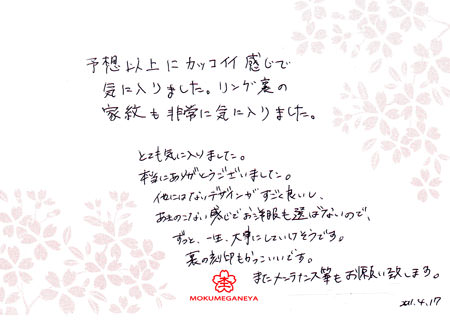 予想以上にカッコイイ感じで
気に入りました。リング裏の
家紋も非常に気に入りました。
とても気に入りました。
本当にありがとうございました。
他にはないデザインがすごく良いし、
あきのこない感じでお洋服も選ばないので、
ずっと、一生、大事にしていけそうです。
裏の刻印もかっこいいです。
またメンテナンス等もお願い致します。
MOKUMEGANEYA
4.17